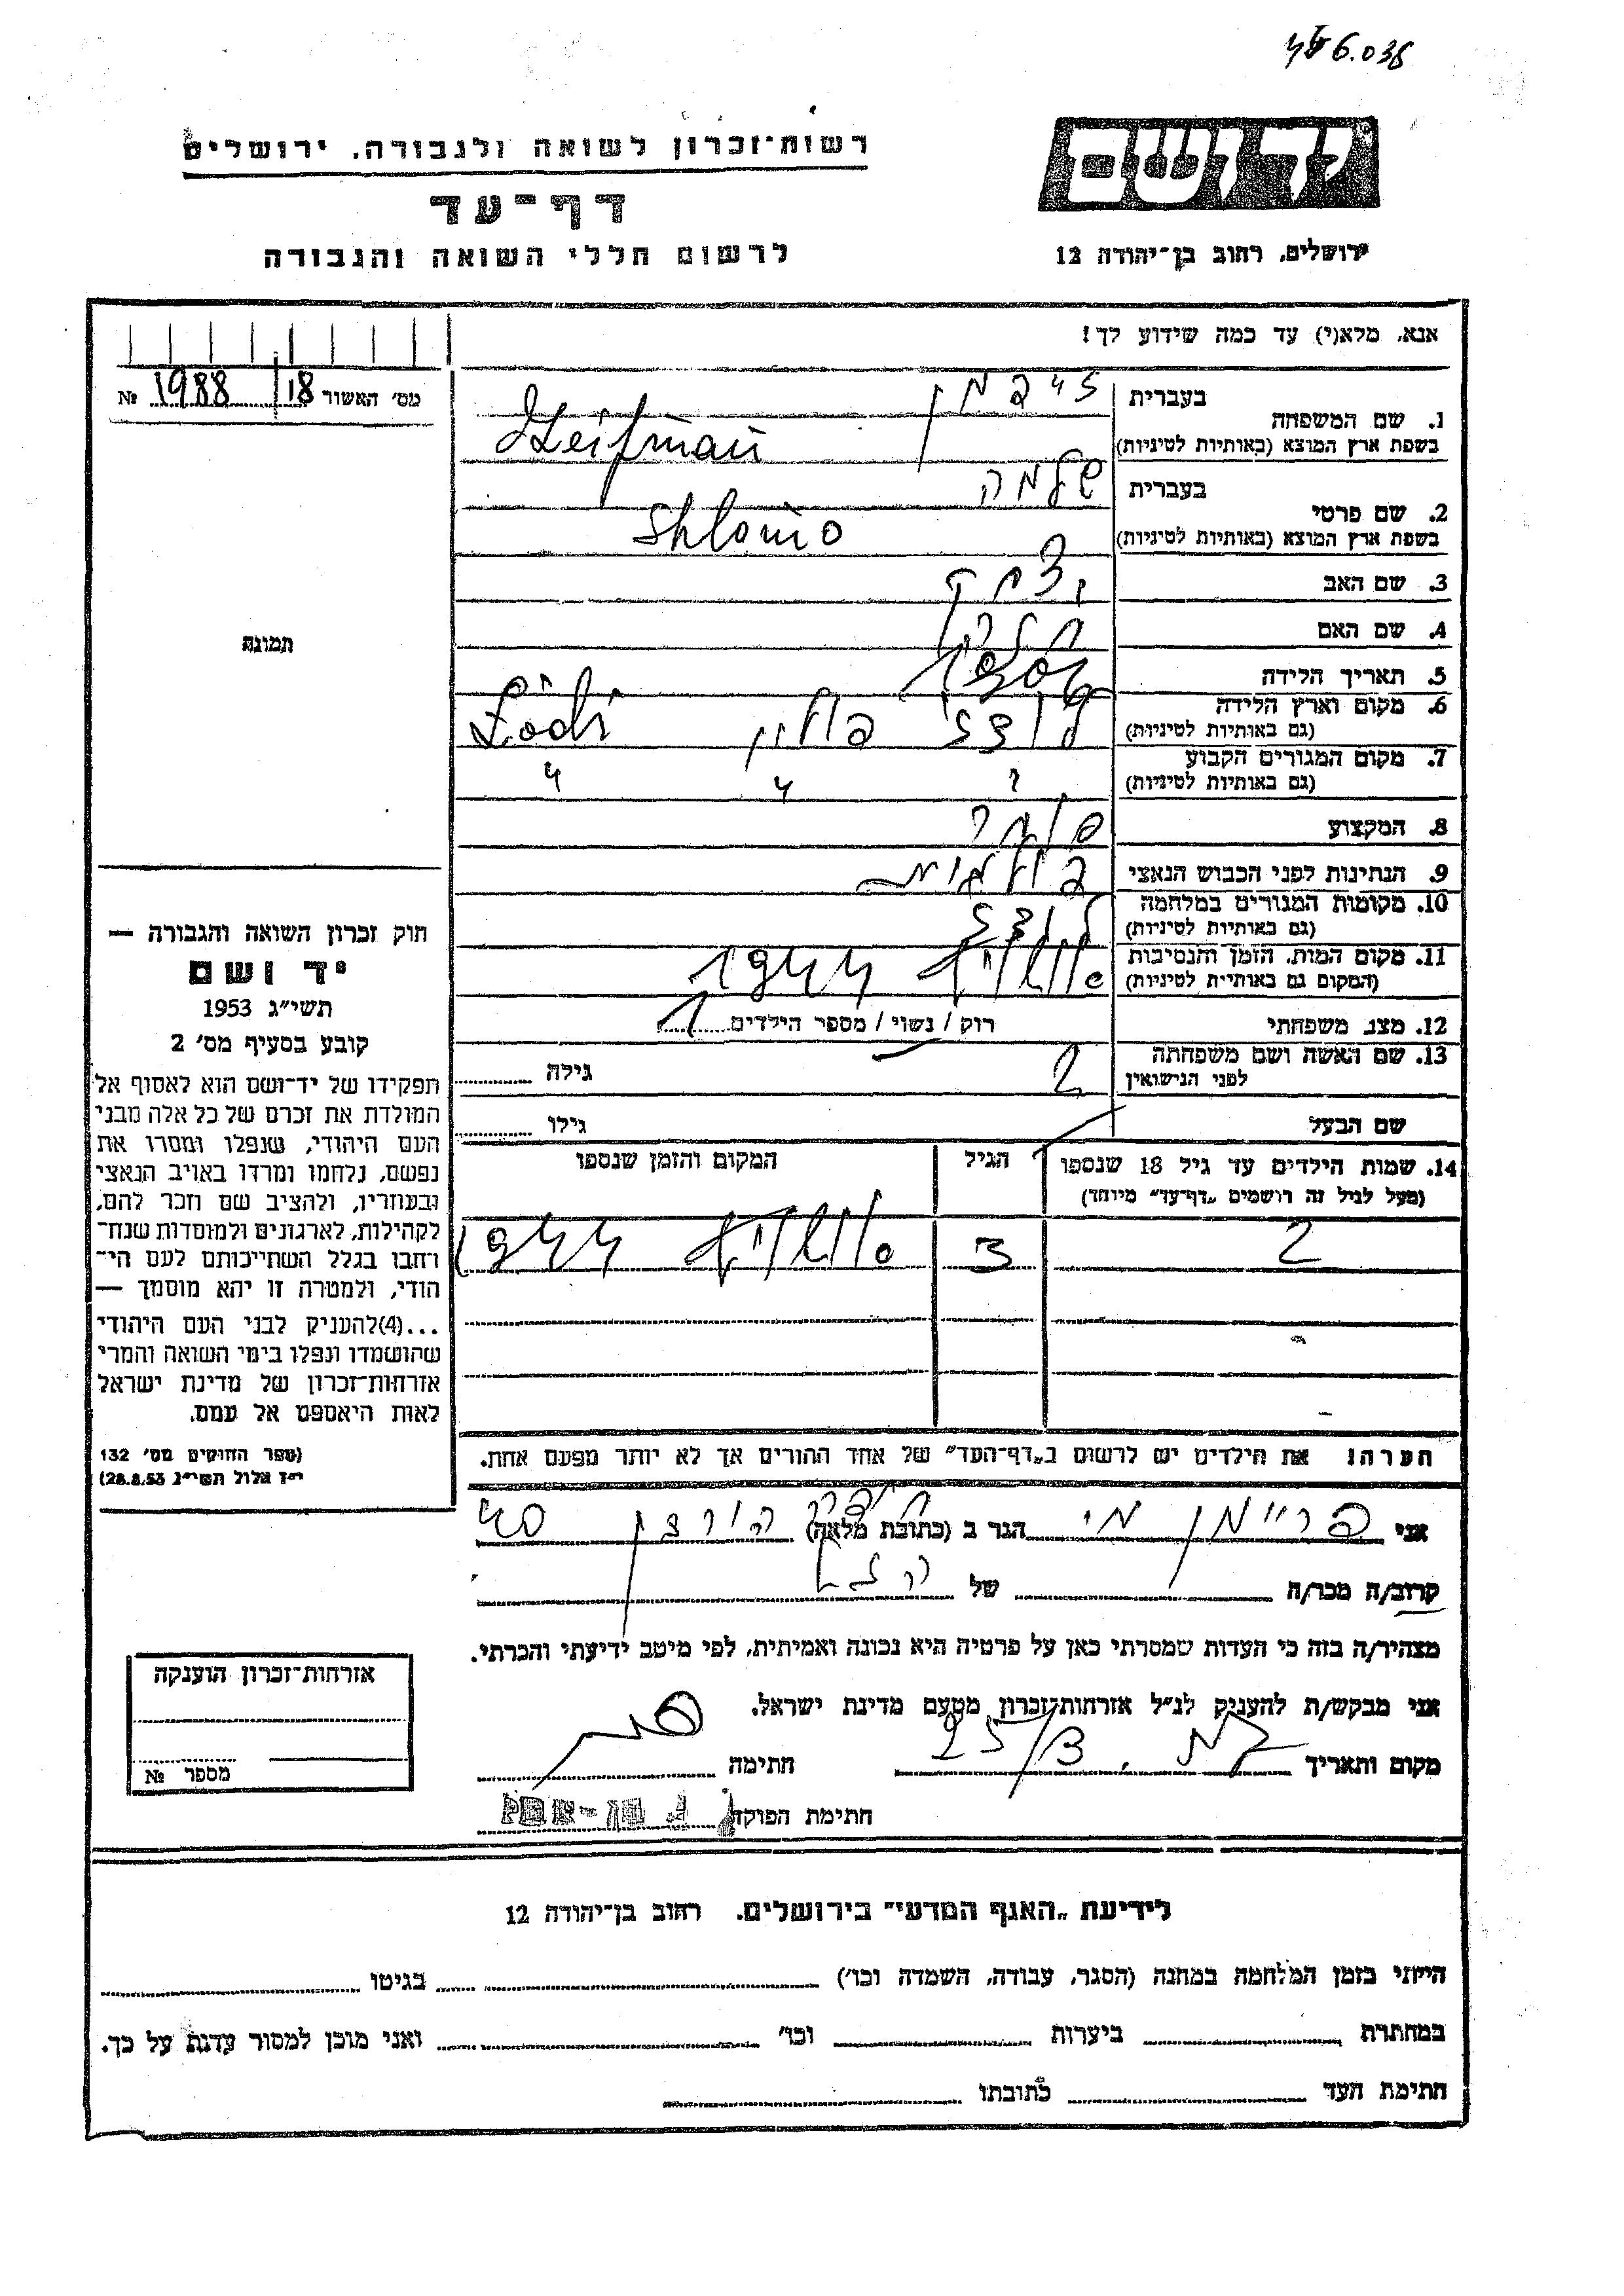 רשות־זכרון לשואה ולגבורה, ירושלים
דף־עד
לרשום חללי השואה והגבורה
יד ושם
ירושלים, רחוב בן־יהודה 12
אנא, מלא(י) עד כמה שידוע לך!
מס' האשור 18 1988 №
תמונה
1. שם המשפחה
בעברית
בשפת ארץ המוצא (באותיות לטיניות)
2. שם פרטי
בעברית שלמה
בשפת ארץ המוצא (באותיות לטיניות) Shlomo
3. שם האב יצחק
4. שם האם
5. תאריך הלידה
6. מקום וארץ הלידה
(גם באותיות לטיניות) לודז' פולין Łódź
7. מקום המגורים הקבוע
(גם באותיות לטיניות) " " "
8. המקצוע סוחר
9. הנתינות לפני הכבוש הנאצי פולנית
10. מקומות המגורים במלחמה
(גם באותיות לטיניות) לודז
11. מקום המות, הזמן והנסיבות
(המקום גם באותיית לטיניות) אושויץ 1944
12. מצב משפחתי רוק / נשוי / מספר הילדים 1
13. שם האשה ושם משפחתה
לפני הנישואין ? גילה
שם הבעל גילו
14. שמות הילדים עד גיל 18 שנספו
(מעל לגיל זה רושמים „דף־עד" מיוחד)
הגיל
המקום והזמן שנספו
? 3 אושויץ 1944
הערה! את הילדים יש לרשום ב„דף־העד" של אחד ההורים אך לא יותר מפעם אחת.
חוק זכרון השואה והגבורה —
יד ושם
תשי"ג 1953
קובע בסעיף מס' 2
תפקידו של יד־ושם הוא לאסוף אל
המולדת את זכרם של כל אלה מבני
העם היהודי, שנפלו ומסרו את
נפשם, נלחמו ומרדו באויב הנאצי
ובעוזריו, ולהציב שם וזכר להם,
לקהילות, לארגונים ולמוסדות שנח־
רחבו בגלל השתייכותם לעם הי־
הודי, ולמטרה זו יהא מוסמך —
...(4)להעניק לבני העם היהודי
שהושמדו ונפלו בימי השואה והמרי
אזרחות־זכרון של מדינת ישראל
לאות היאספם אל עמם.
(ספר החוקים מס' 132
י"ז אלול תשי"ג 28.8.53)
אני פריימן הגר ב (כתובת מלאה)
קרוב/ה מכר/ה של
מצהיר/ה בזה כי העדות שמסרתי כאן על פרטיה היא נכונה ואמיתית, לפי מיטב ידיעתי והכרתי.
אני מבקש/ת להעניק לנ"ל אזרחות־זכרון מטעם מדינת ישראל.
מקום ותאריך חתימה
חתימת הפוקד
אזרחות־זכרון הוענקה
מספר №
לידיעת „האגף המדעי" בירושלים. רחוב בן־יהודה 12
הייתי בזמן המלחמה במחנה (הסגר, עבודה, השמדה וכו') בגיטו
במחתרת ביערות וכו' ואני מוכן למסור עדות על כך.
חתימת העד כתובתו